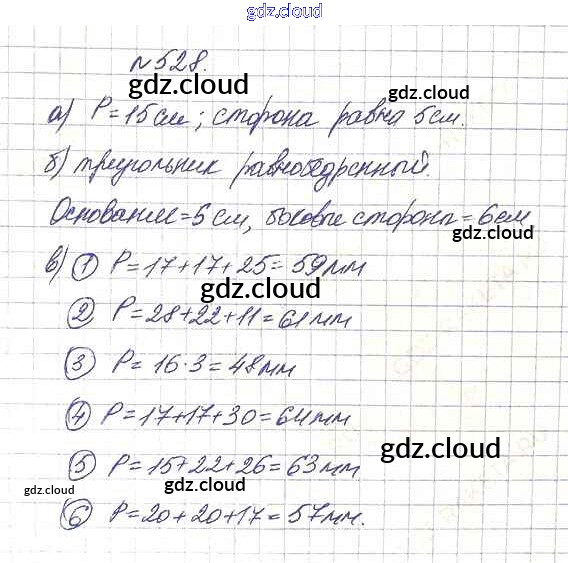 gdz.cloud
№528.
gdz.cloud
а) P=15см; сторона равна 5см.
gdz.cloud
б) треугольник равнобедренный.
Основание=5см, боковые стороны=6см
gdz.cloud
в) ① P=17+17+25=59мм
gdz.cloud
② P=28+22+11=61мм
③ P=16·3=48мм
④ P=17+17+30=64мм
gdz.cloud
⑤ P=15+22+26=63мм
gdz.cloud
gdz.cloud
⑥ P=20+20+17=57мм.
gdz.cloud